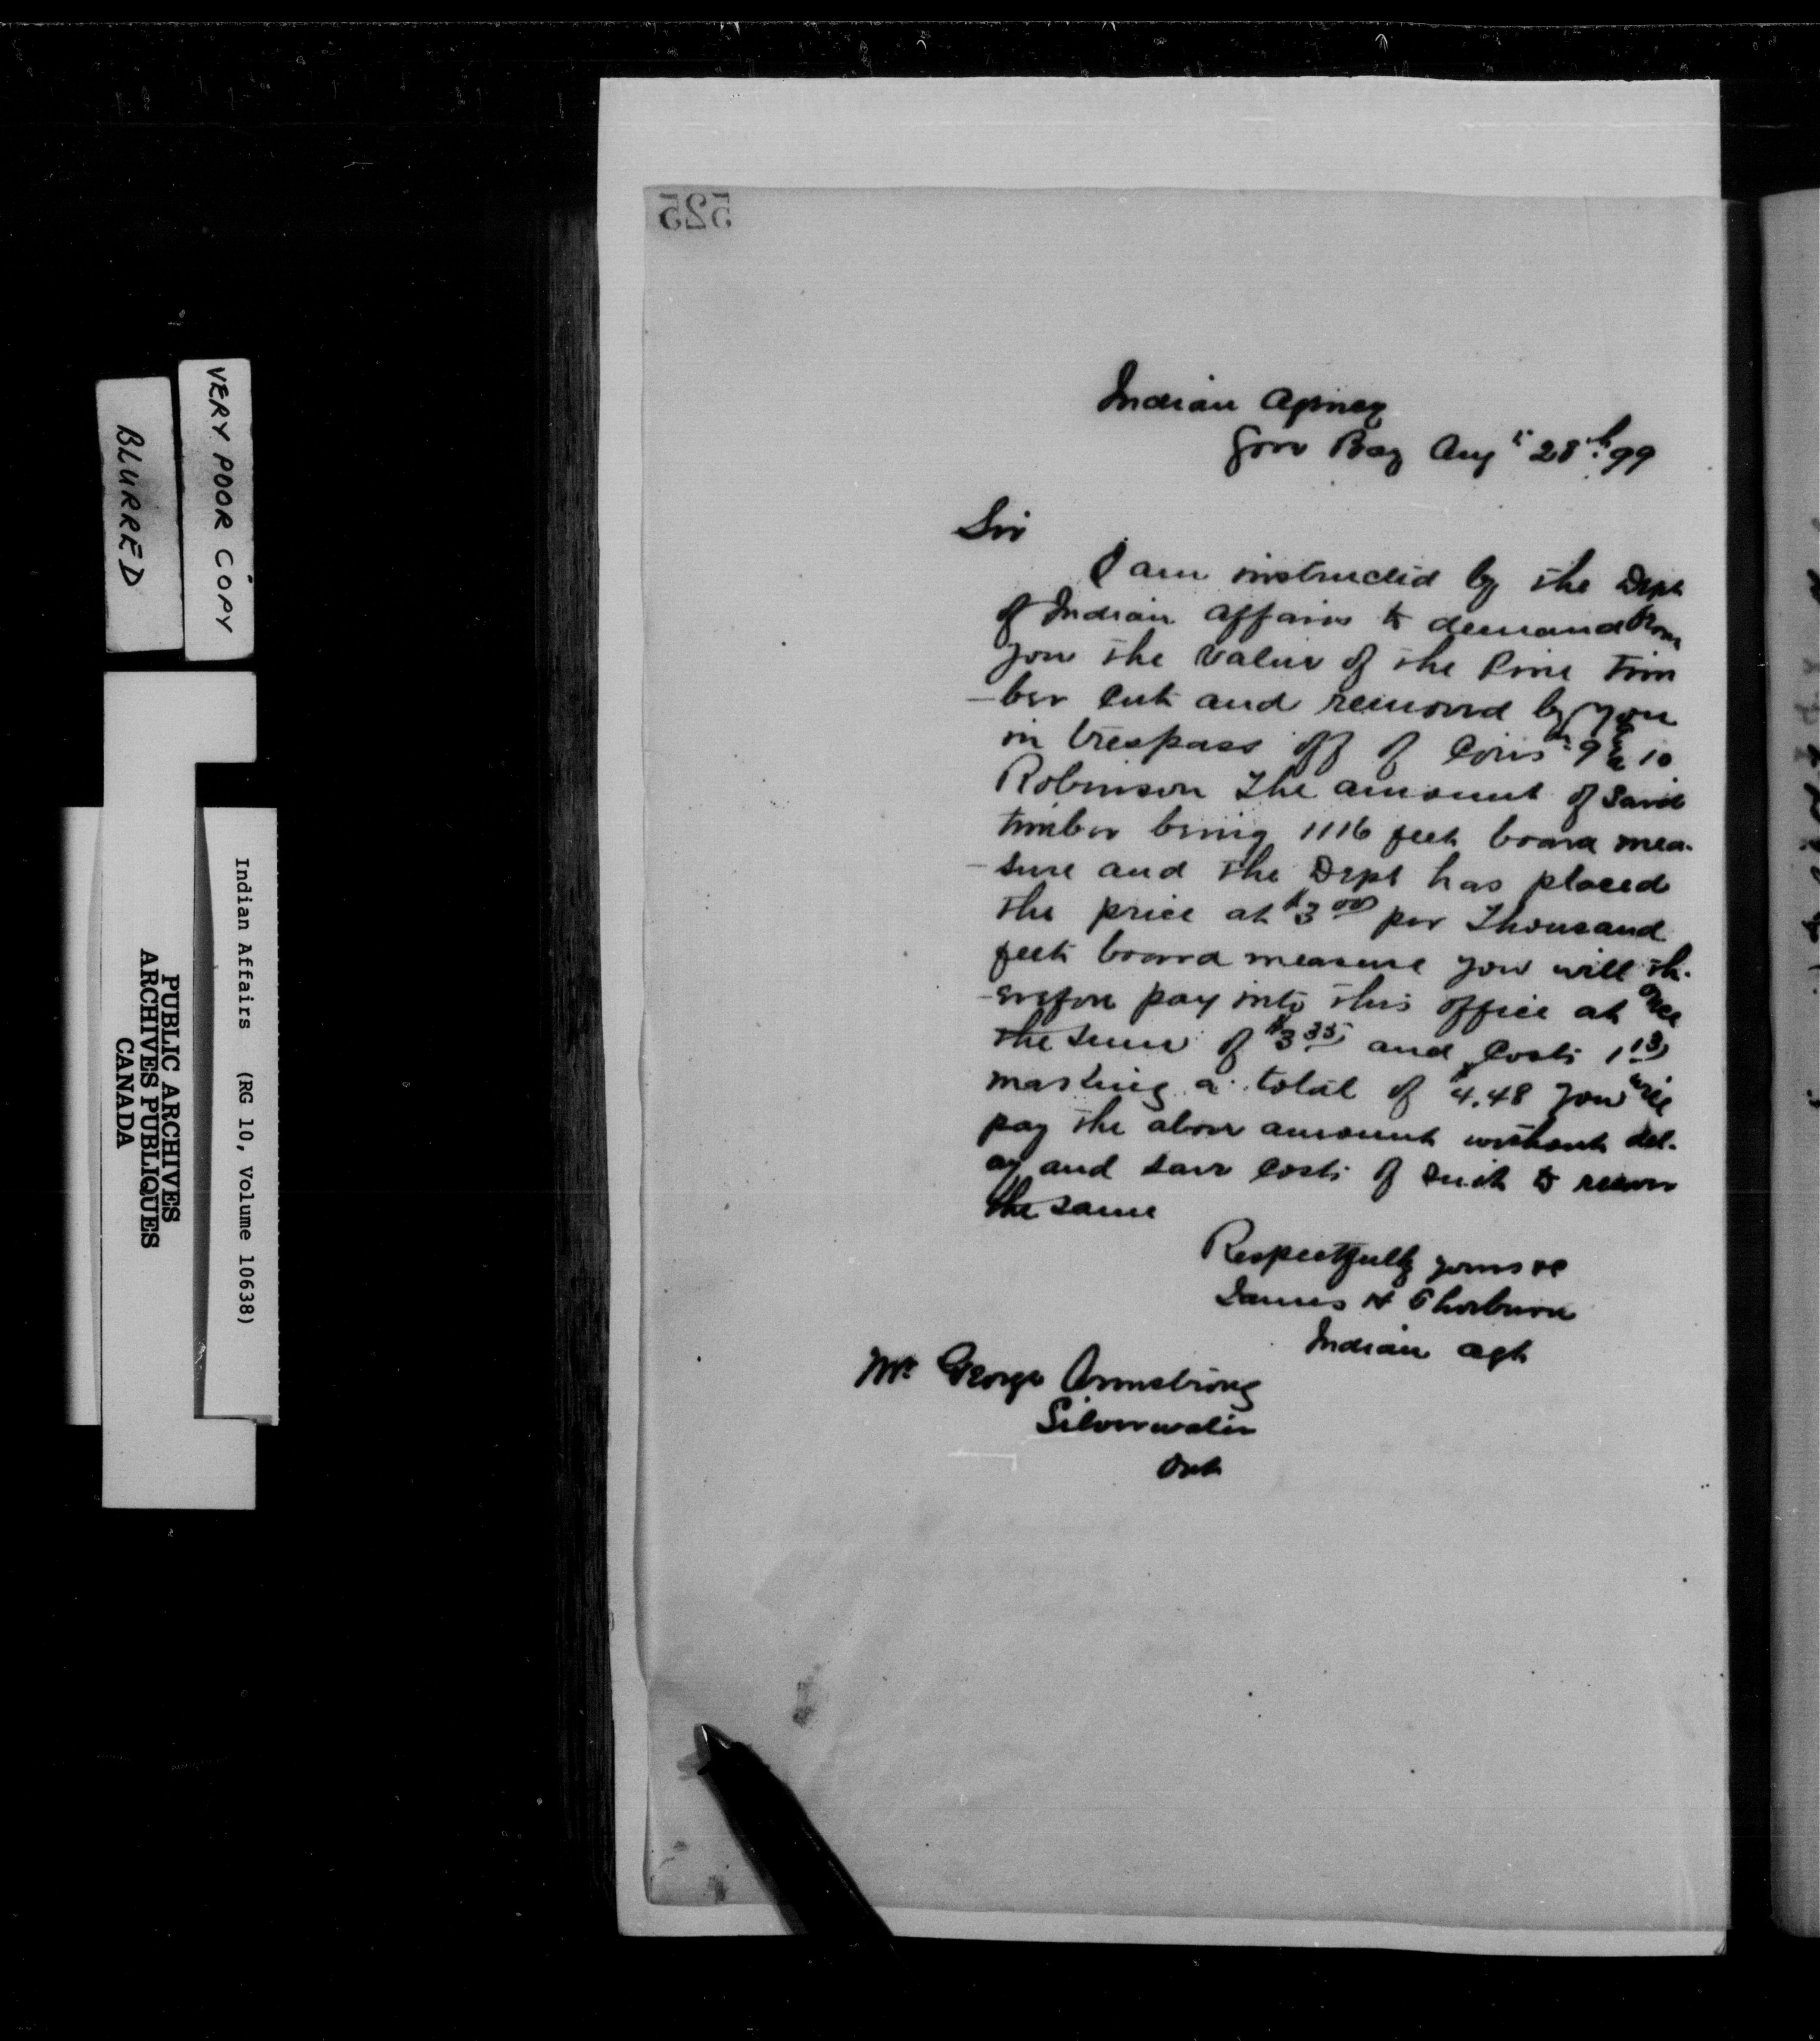 525
Indian Agency
Gore Bay Aug^t 28th 99
Sir
I am instructed by the Dept
of Indian Affairs to demand from
you the value of the Pine Tim
-ber Cut and removed by you
in trespass off of Cons 9 & 10
Robinson The amount of said
timber being 1116 feet board mea-
-sure and the Dept has placed
the price at $3.00 per Thousand
feet board measure you will th-
-erefore pay into this office at once
the sum of $3.35 and Costs 1.13
making a total of $4.48 you will
pay the above amount without del-
ay and save Costs of suit to recover
the same
Respectfully yours &c
James H Thorburn
Indian Agt
Mr George Armstrong
Silverwater
Ont
VERY POOR COPY
BLURRED
Indian Affairs (RG 10, Volume 10638)
PUBLIC ARCHIVES
ARCHIVES PUBLIQUES
CANADA